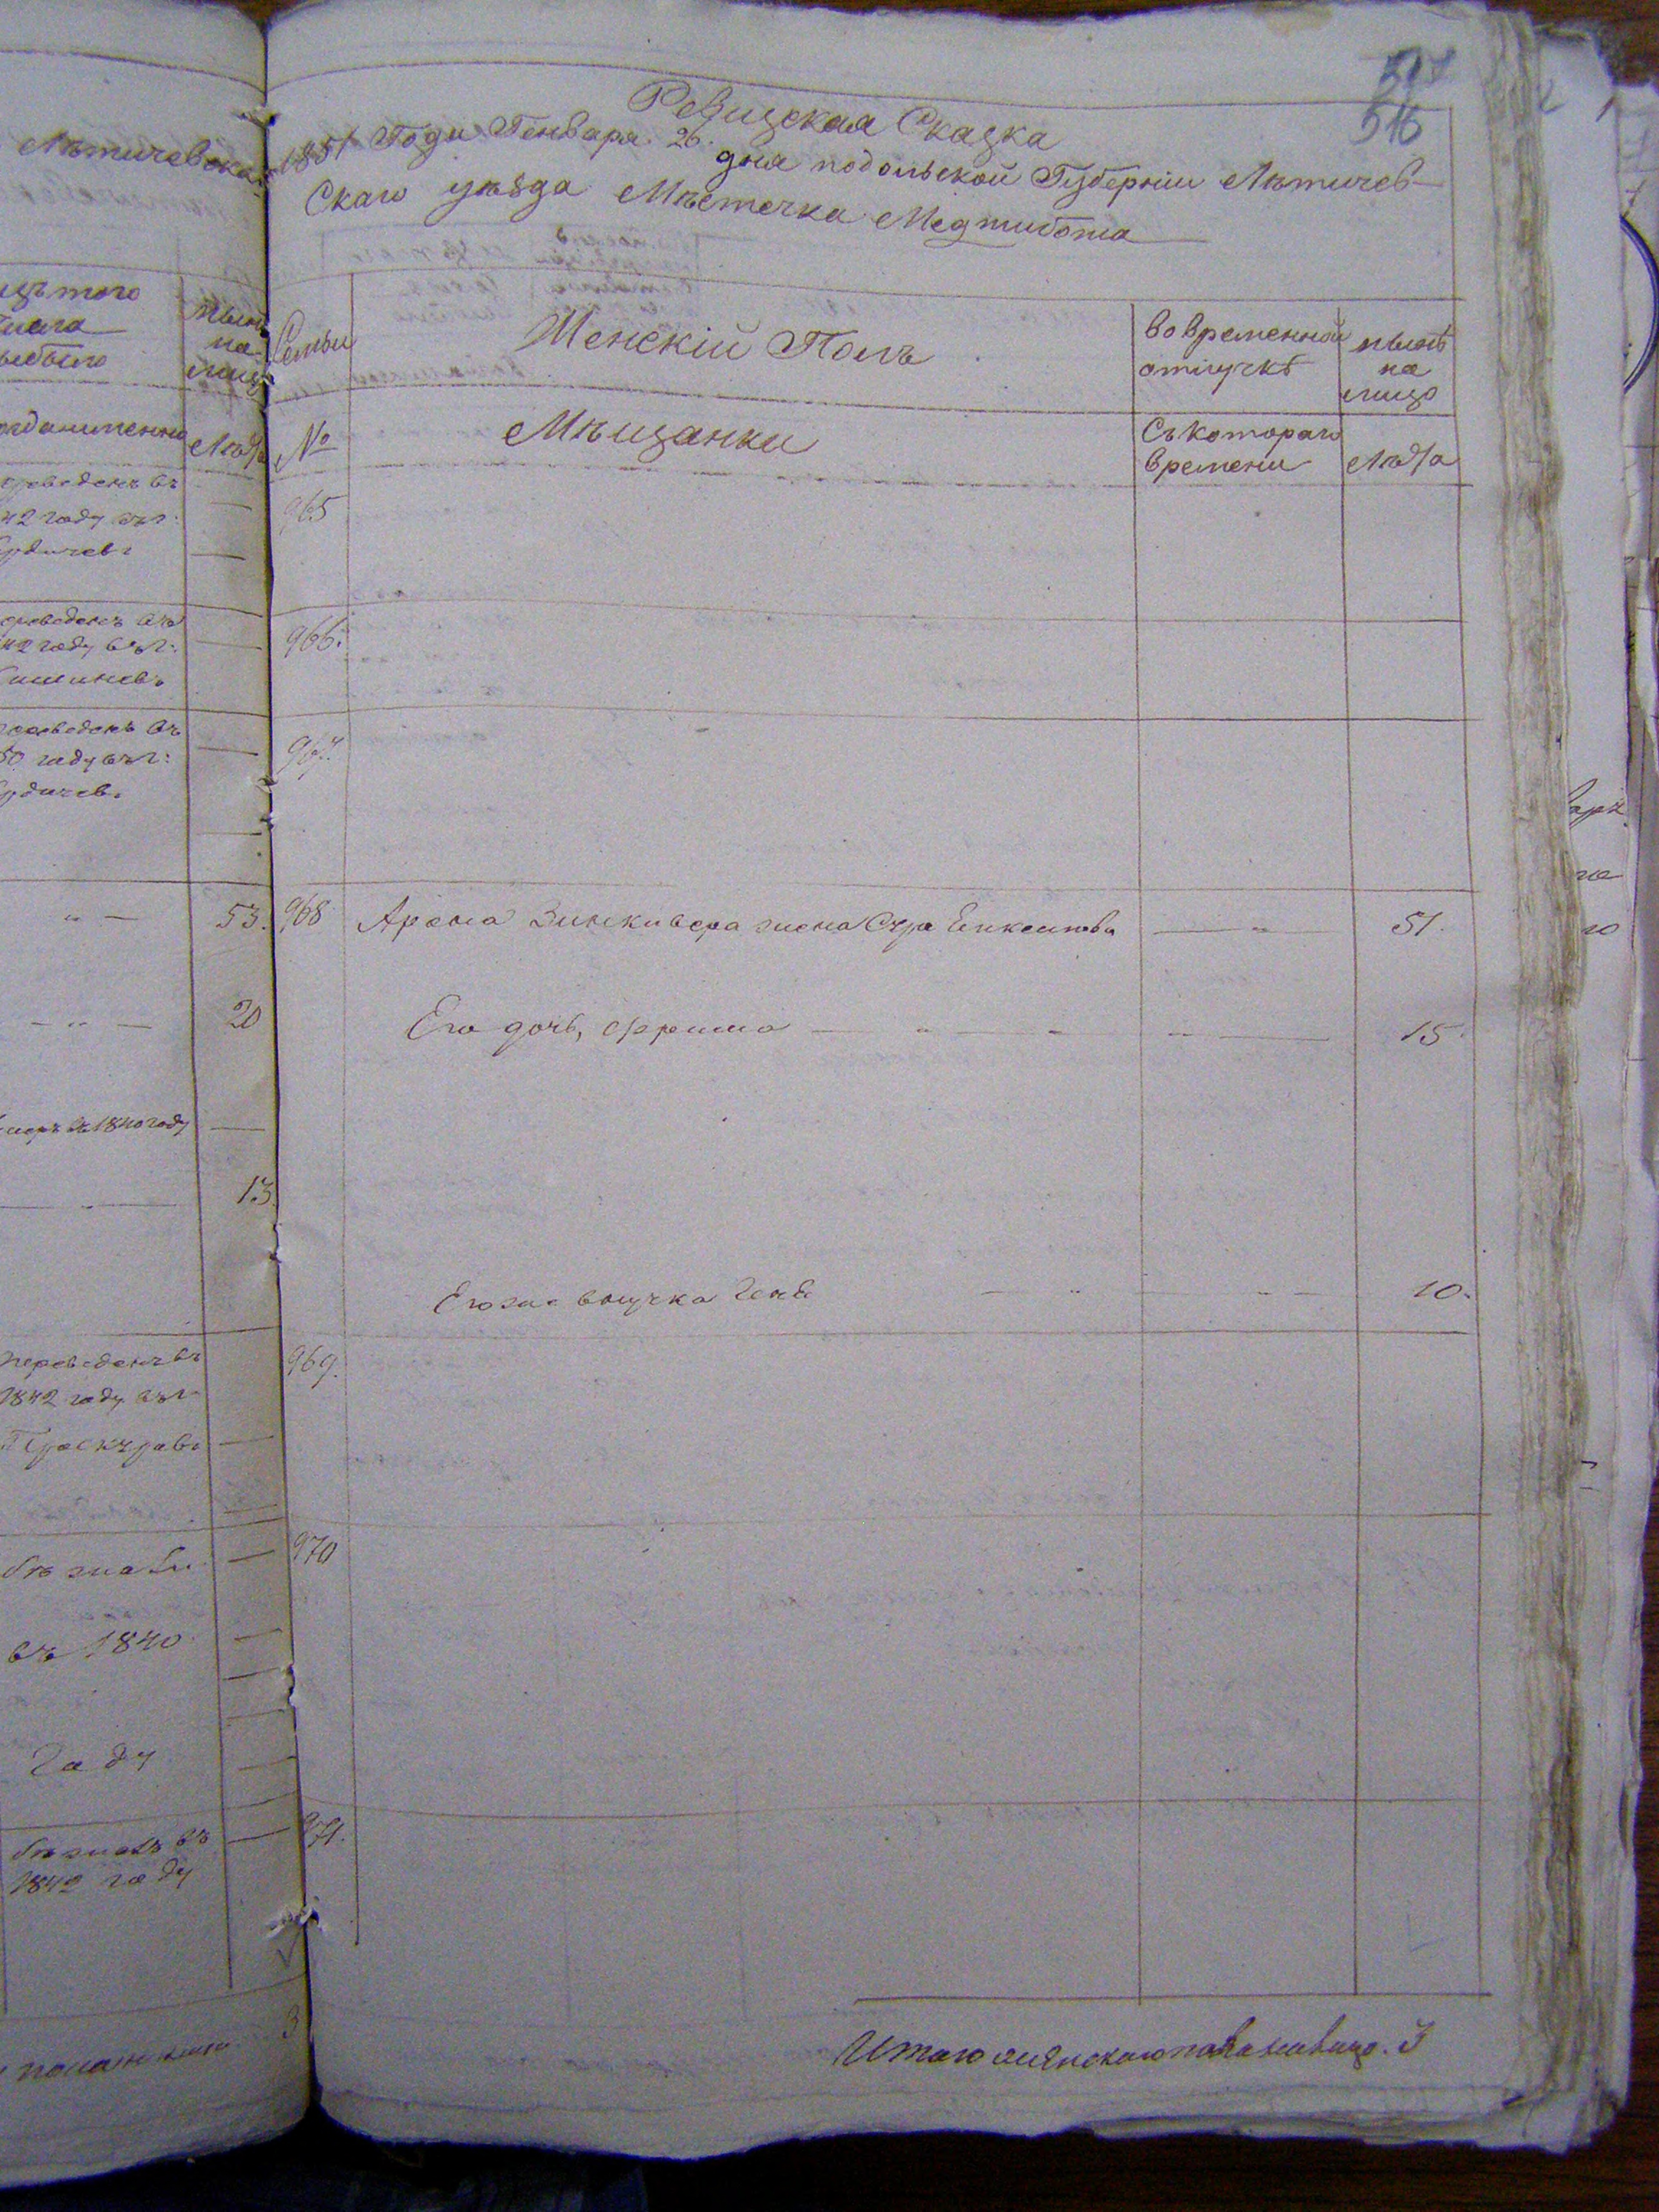 Лѣтичевска
517
516
Ревизская Сказка
1851 Года Генваря 26. дня подольской Губерніи Лѣтичев-
Скаго уѣзда Мѣстечка Меджибожа
изъ того
числа
выбыло
нынѣ
на
лицо
Лѣта
Семьи
Женскій Полъ
во временной
отлучкѣ
нынѣ
на
лицо
№
Мѣщанки
Съ котораго
времени
Лѣта
переведенъ въ
42 году въ г:
Бердичевъ
965
переведенъ въ
42 году въ г:
Кишиневъ
966.
переведенъ въ
50 году въ г:
Бердичевъ
967.
53.
968
Арона Зинкивера жена Сура
51.
20
Его дочь, Фрима
15.
умеръ въ 1840 году
13
Его же внучка Геня
10.
переведенъ въ
1842 году въ г
Проскуровъ
969.
бѣжалъ
въ 1840
году
970
бѣжалъ въ
1842 году
971.
3
Итого женскаго пола на лицо. 3